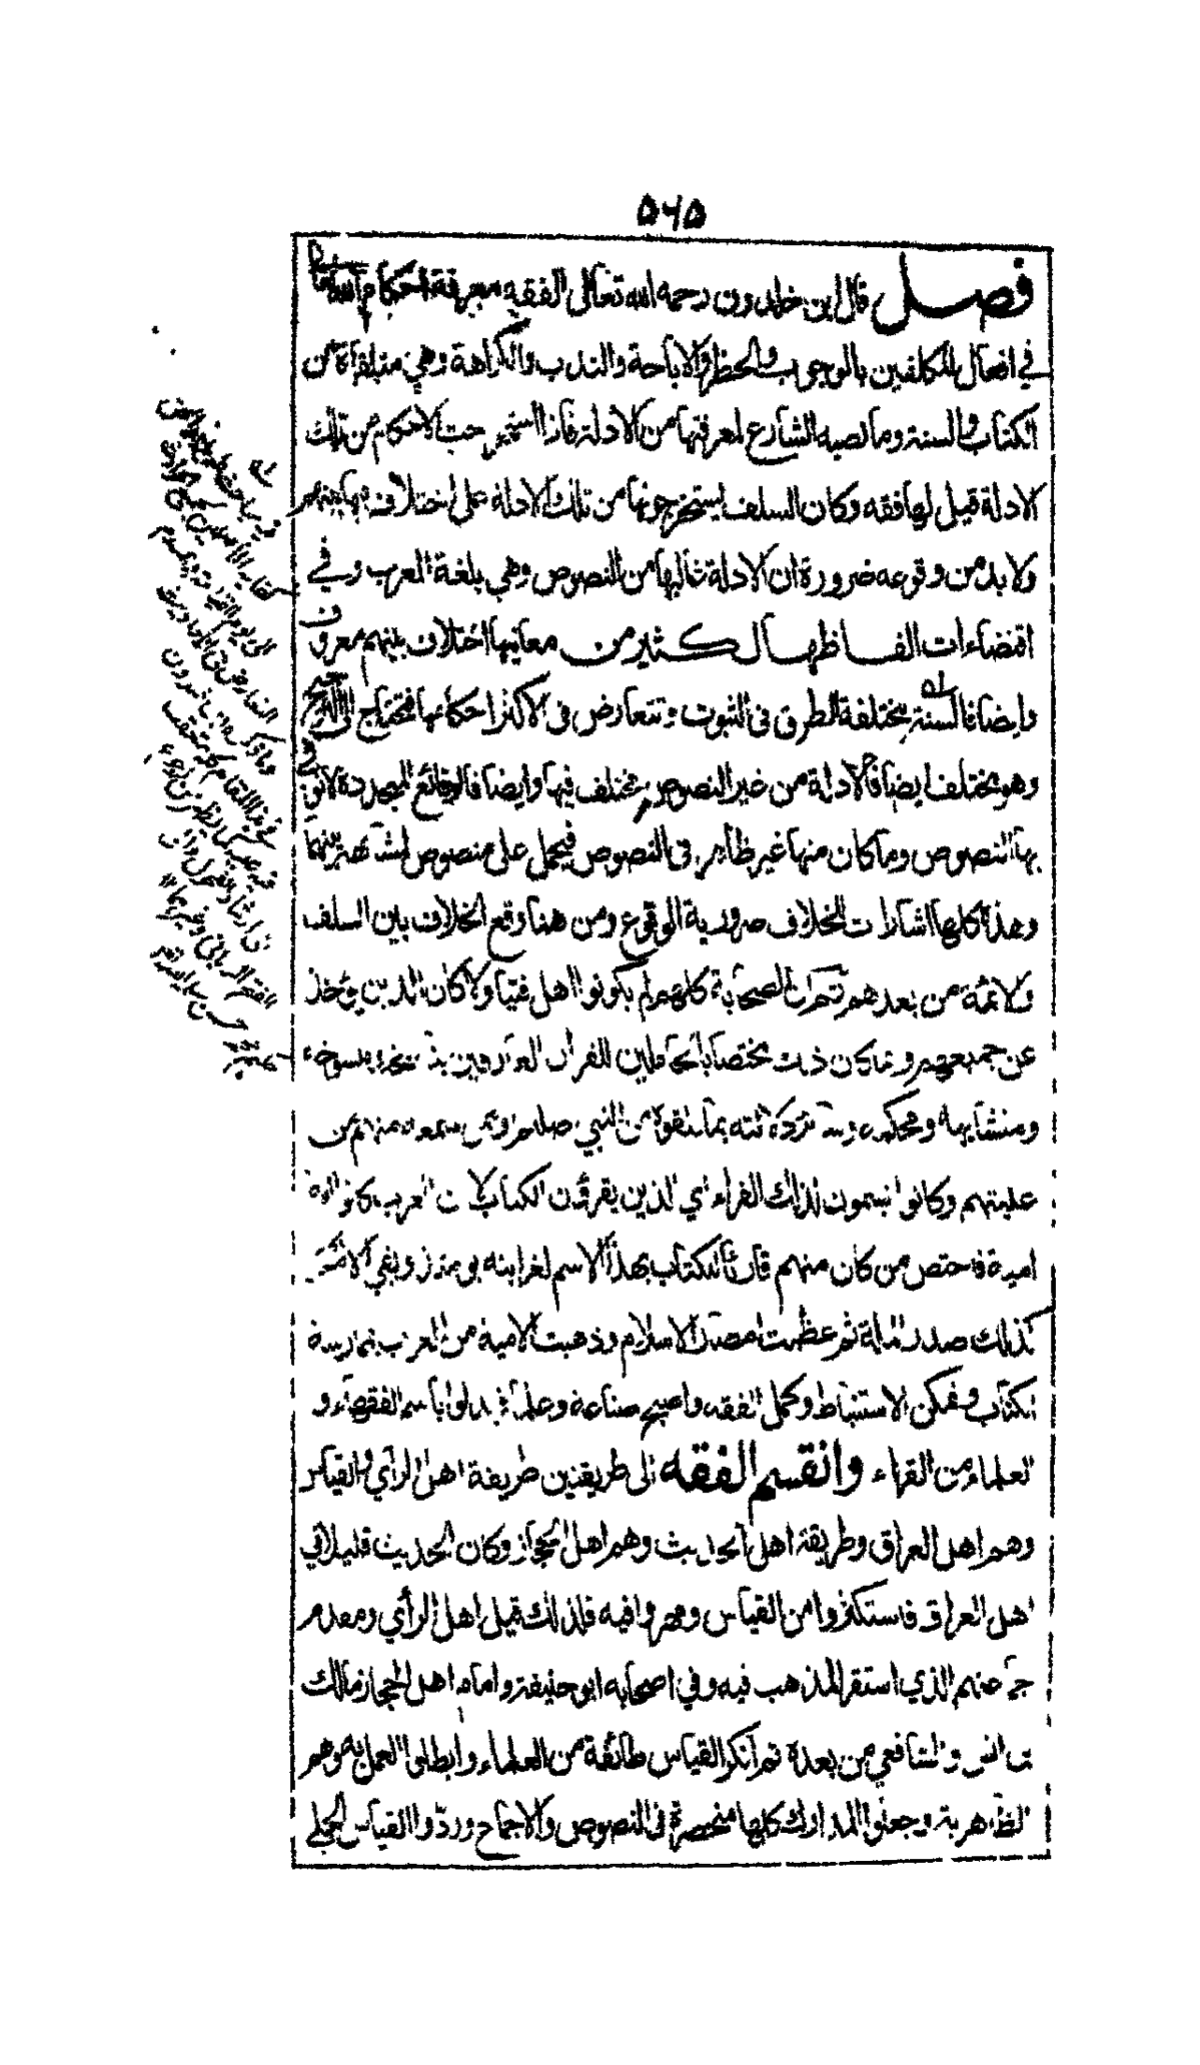 ٥٦٥
فصل قال ابن خلدون رحمه الله تعالى الفقه معرفة احكام الله تعالى
في افعال المكلفين بالوجوب والحظر والاباحة والندب والكراهة وهي متلقاة من
الكتاب والسنة وما نصبه الشارع لمعرفتها من الادلة فاذا استخرجت الاحكام من تلك
الادلة قيل لها فقه وكان السلف يستخرجونها من تلك الادلة على اختلاف فيها بينهم
ولا بد من وقوعه ضرورة ان الادلة غالبها من النصوص وهي بلغة العرب وفي
اقتضاءات الفاظها لكثير من معانيها اختلاف بينهم معروف
وايضا فالسنة مختلفة الطرق فى الثبوت وتتعارض فى الاكثر احكامها فتحتاج الى الترجيح
وهو مختلف ايضا فالادلة من غير النصوص مختلف فيها وايضا فالوقائع المتجددة لا توفى
بها النصوص وما كان منها غير ظاهر فى النصوص فيحمل على منصوص لمشابهة بينهما
وهذه كلها اشارات للخلاف ضرورية الوقوع ومن هنا وقع الخلاف بين السلف
والائمة من بعدهم ثم ان الصحابة كلهم لم يكونوا اهل فتيا ولا كان الدين يؤخذ
عن جميعهم وانما كان ذلك مختصا بالحاملين للقران العارفين بناسخه ومنسوخه
ومتشابهه ومحكمه وسائر دلالته بما تلقوه من النبي صلعم او ممن سمعه منهم من
عليتهم وكانوا يسمون لذلك القراء اي الذين يقرؤن الكتاب لان العرب كانوا امة
امية فاختص من كان منهم قارئا للكتاب بهذا الاسم لغرابته يومئذ وبقي الامر
كذلك صدر الملة ثم عظمت امصار الاسلام وذهبت الامية من العرب بممارسة
الكتاب وتمكن الاستنباط وكمل الفقه واصبح صناعة وعلما فبدلوا باسم الفقهاء و
العلماء من القراء وانقسم الفقه الى طريقتين طريقة اهل الرأي والقياس
وهم اهل العراق وطريقة اهل الحديث وهم اهل الحجاز وكان الحديث قليلا في
اهل العراق فاستكثروا من القياس ومهروا فيه فلذلك قيل اهل الرأي ومقدم
جماعتهم الذي استقر المذهب فيه وفي اصحابه ابو حنيفة وامام اهل الحجاز مالك
بن انس والشافعي من بعده ثم انكر القياس طائفة من العلماء وابطلوا العمل به وهم
الظاهرية وجعلوا المدارك كلها منحصرة فى النصوص والاجماع وردوا القياس الجلي